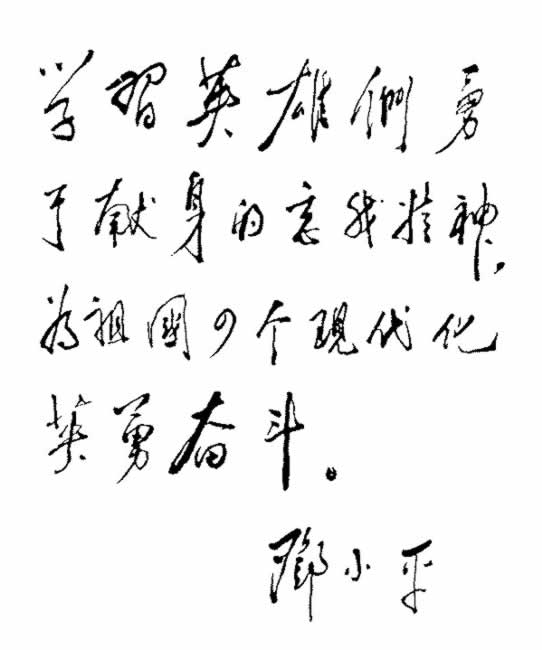 学習英雄們勇
于献身的忘我精神,
为祖國四个現代化
英勇奋斗。
鄧小平